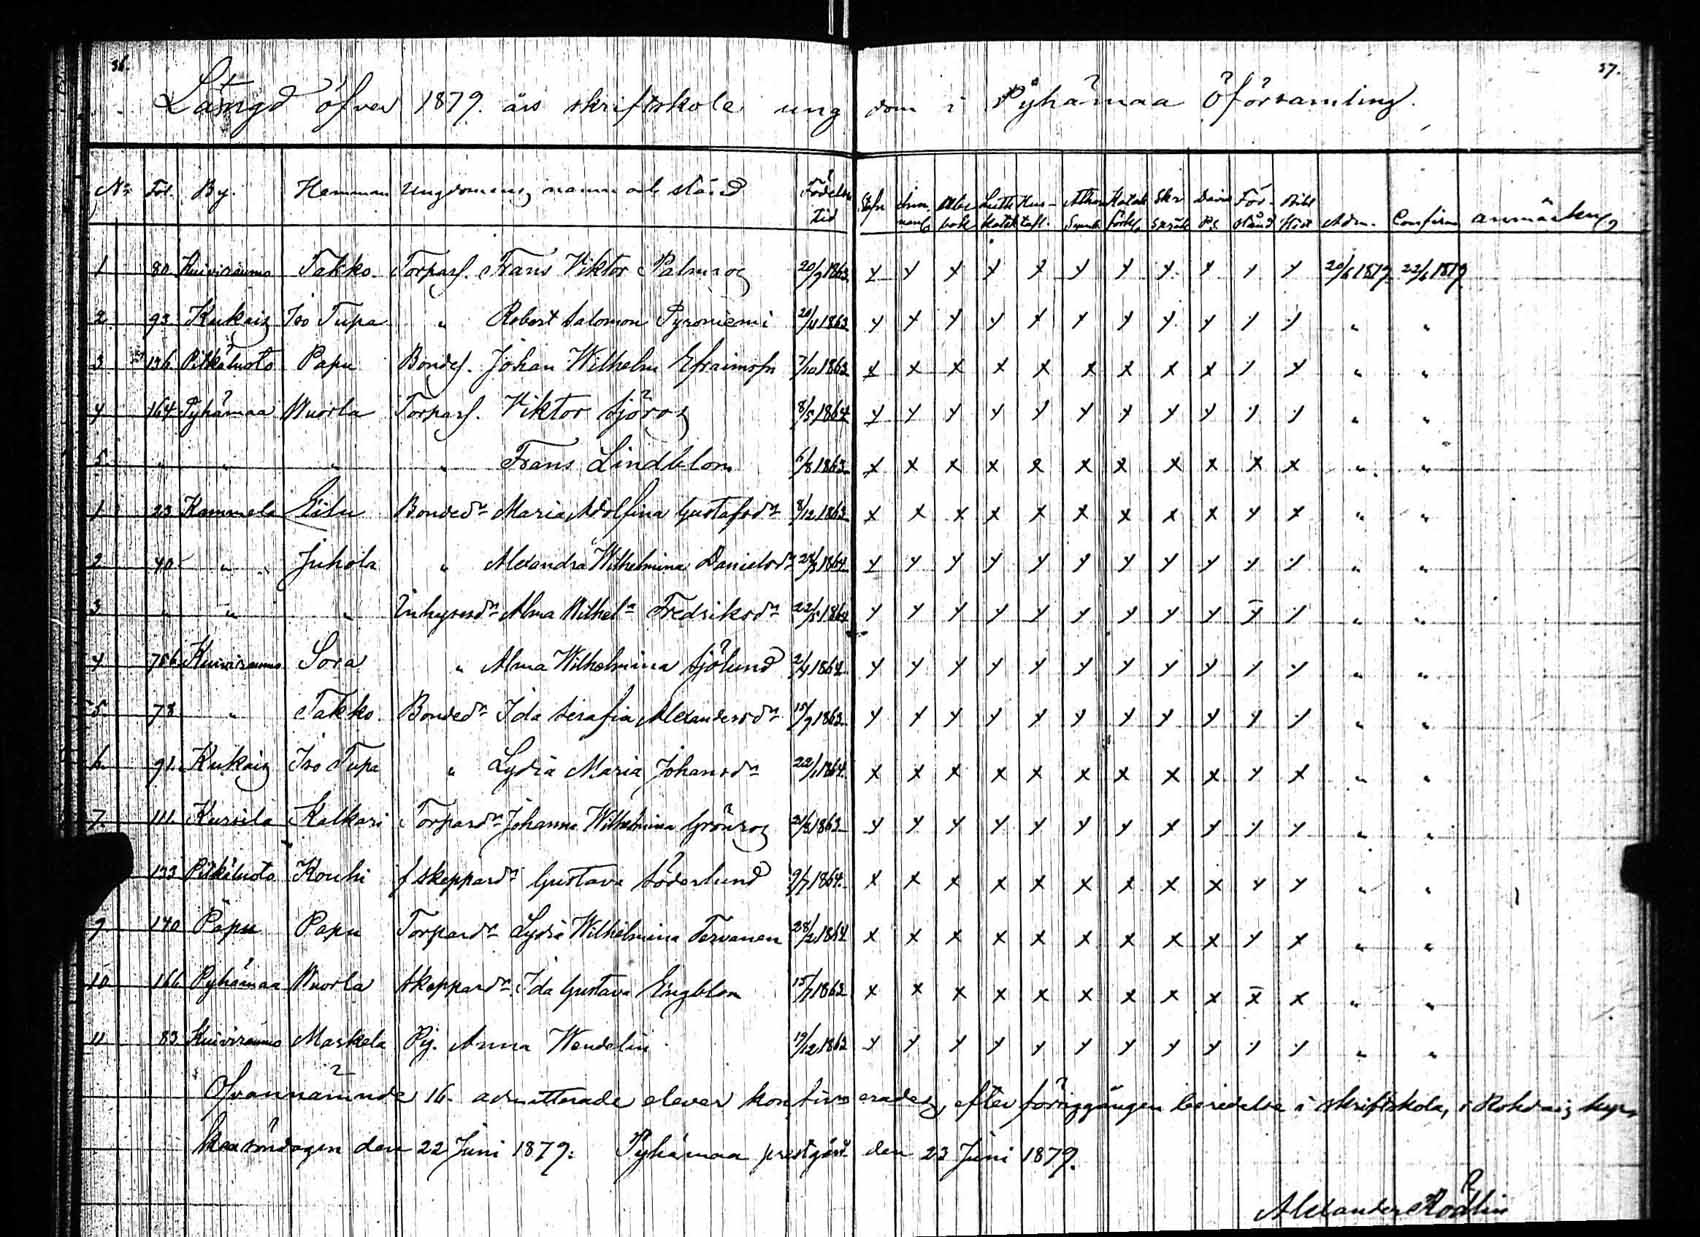 36. 37.
Längd öfver 1879. års skriftskole ung dom i Pyhämaa Öförsamling.
No Fol. By. Hemman Ungdomens namn och stånd Födelse tid Adm. Confirm anmärkn,
1 80 Kuivirauma Takko Torpars. Frans Viktor Palmros 20/9 1863 x x x x x x x x x x x 20/6 1879 22/6 1879
2 93 Kukais Iso Tupa " Robert Salomon Pyroniemi 20/11 1863 x x x x x x x x x x x " "
3 136 Pitkäluoto Papu Bondes. Johan Wilhelm Efraimsson 7/10 1863 x x x x x x x x x x x " "
4 164 Pyhämaa Nuorla Torpars. Viktor Sjöros 8/5 1864 x x x x x x x x x x x " "
5. " " " " Frans Lindblom 6/8 1863 x x x x x x x x x x x " "
1 23 Kammela Eilu Bonded:r Maria Adolfina Gustafsd:r 8/12 1863 x x x x x x x x x x x " "
2 40 " Juhola " Alexandra Wilhelmina Danielsd:r 1864 x x x x x x x x x x x " "
3 " " " Inhysesd:r Alma Wilhel:a Fredriksd:r 22/5 1864 x x x x x x x x x x̅ x " "
4 Kuivirauma Sora " Alma Wilhelmina Sjölund 2/4 1864 x x x x x x x x x x x " "
5. 78 " Takko. Bonded:r Ida Serafia Alexandersd:r 15/9 1863 x x x x x x x x x x x " "
6. 91. Kukais Iso Tupa " Lydia Maria Johansd:r 22/1 1864. x x x x x x x x x x x " "
7. 111. Kursila Kalkari Torpard:r Johanna Wilhelmina Grönros 1863 x x x x x x x x x x x " "
133 Pitkäluoto Kouhi f skeppard:r Gustava Söderlund 9/7 1864. x x x x x x x x x x x " "
9 140 Papu Papu Torpard:r Lydia Wilhelmina Tervanen 28/2 1864 x x x x x x x x x x x " "
10 166 Pyhämaa Nuorla Skeppard:r Ida Gustava Engblom 15/7 1863 x x x x x x x x x x̅ x " "
11 83 Kuivirauma Markela Pig. Anna Wendelin 19/12 1863 x x x x x x x x x x x " "
Ofvannämnde 16. admitterade elever konfirmerades, efter föregången beredelse i skriftskola, i Rohdais kyrka
söndagen den 22 Juni 1879: Pyhämaa prestgård den 23 Juni 1879.
Alexander Rödlin